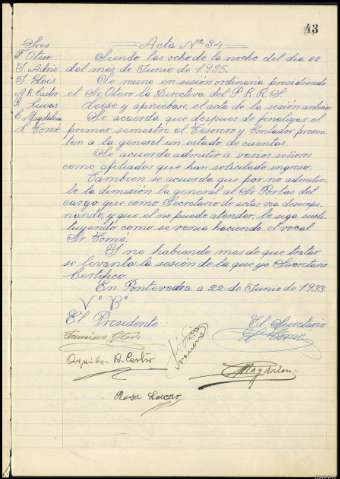 43
Acta Nº 34
Sres
F. Otero
A. R. Castro
R. Lucas
C. Magdalena
Siendo las ocho de la noche del dia 22
del mez de Junio de 1935.
Se reune en sesión ordinaria presidiendo
el Sr. Otero la Directiva del P.R.R.S.
Leese y apruebase el acta de la sesión anterior
Se acuerda que despues de finalizar el
primer semestre el Tesorero y Contador presen
ten a la general un estado de cuentas.
Se acuerda admitir a varios señores
como afiliados que han solicitado ingreso.
Tambien se acuerda que por no admitir
le la demisión la general al Sr. Portas del
cargo que como Secretario de actas veia desempe
ñando, y que el no puede atender, le siga susti
tuyendo como se venia haciendo el vocal
Sr. Tomé.
Y no habiendo mas de que tratar
se levanta la sesión de la que yo Secretario
Certifico.
En Pontevedra a 22 de Junio de 1935
Vº Bº
El Presidente
El Secretario
Francisco Otero
R. Castro
Rosa Lucas
Magdalena